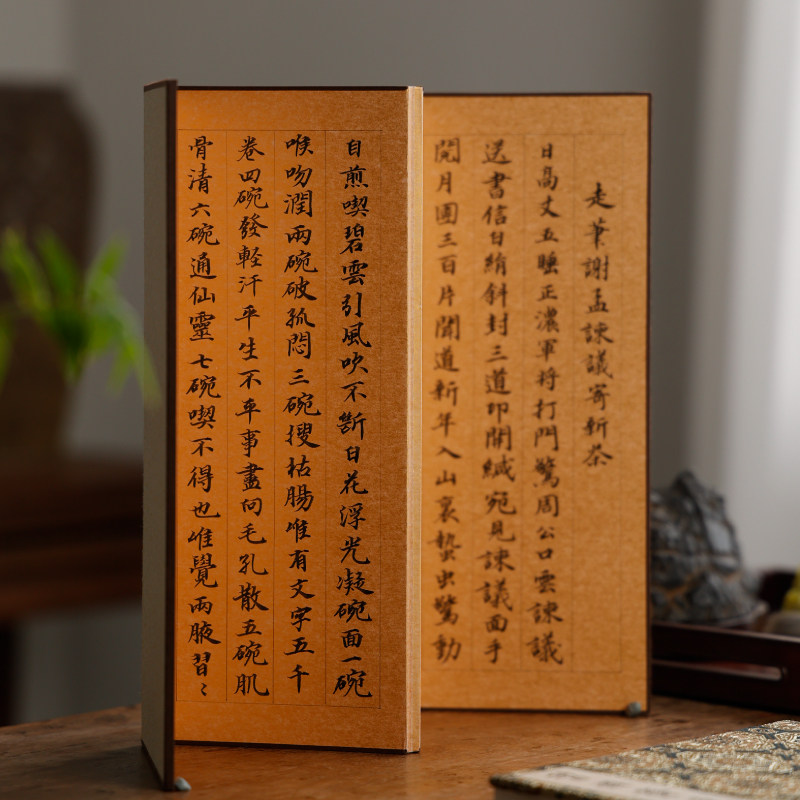 走筆謝孟諫議寄新茶
日高丈五睡正濃軍將打門驚周公口雲諫議
送書信白絹斜封三道印開緘宛見諫議面手
閱月團三百片聞道新年入山裏蟄虫驚動
自煎喫碧雲引風吹不斷白花浮光凝碗面一碗
喉吻潤兩碗破孤悶三碗搜枯腸唯有文字五千
卷四碗發輕汗平生不平事盡向毛孔散五碗肌
骨清六碗通仙靈七碗喫不得也唯覺兩腋習〻